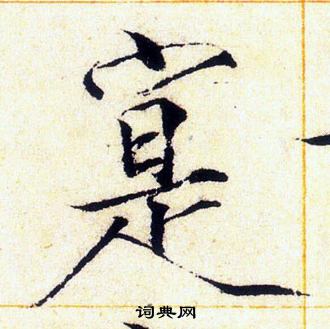 寔
词典网